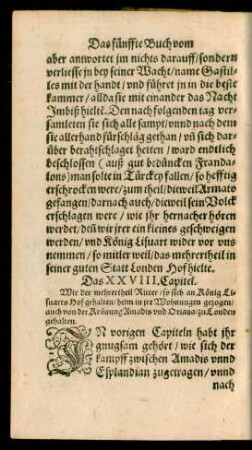 Das fünffte Buch vom
aber antwortet jm nichts darauff/sondern
verliesse jn bey seiner Wacht/name Gastil-
les mit der handt/vnd führet jn in die beste
kammer/allda sie mit einander das Nacht
Imbiß hielte. Den nach folgenden tag ver-
samleten sie sich alle sampt/vnnd nach dem
sie allerhand fürschläg gethan/vñ sich dar-
über berahtschlaget hetten/ward endtlich
beschlossen (auß gut bedüncken Franda-
lons) man solte in Türckey fallen/so hefftig
erschrocken were/zum theil/dieweil Armato
gefangen/darnach auch/dieweil sein Volck
erschlagen were/wie jhr hernacher hören
werdet/deñ wir jrer ein kleines geschweigen
werden/vnd König Lisuart wider vor vns
nemmen/so mitler weil/das mehrertheil in
seiner guten Statt Londen Hof hielte.
Das XXVIII. Capitel.
Wie der mehrertheil Ritter/so sich an König Li-
suarts Hof gehalten/heim in jre Wohnungen gezogen/
auch von der Krönung Amadis vnd Oriana/zu Londen
gehalten.
IN vorigen Capiteln habt jhr
gnugsam gehört/wie sich der
kampff zwischen Amadis vnnd
Esplandian zugetragen/vnnd
nach